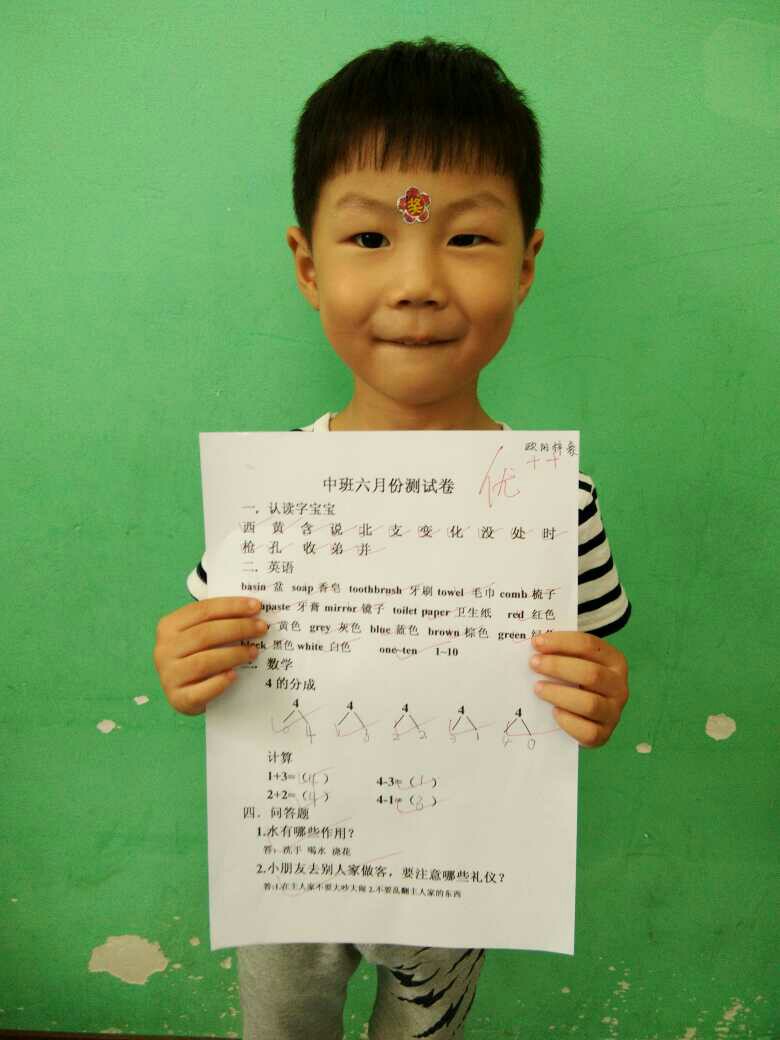 奖
优++
中班六月份测试卷
一．认读字宝宝
西 黄 含 说 北 支 变 化 没 处 时
枪 孔 收 弟 并
二．英语
basin 盆 soap 香皂 toothbrush 牙刷 towel 毛巾 comb 梳子
paste 牙膏 mirror 镜子 toilet paper 卫生纸 red 红色
黄色 grey 灰色 blue 蓝色 brown 棕色 green 绿色
black 黑色 white 白色 one-ten 1~10
三．数学
4 的分成
4 4 4 4 4
0 4 1 3 2 2 3 1 4 0
计算
1+3=（4） 4-3=（1）
2+2=（4） 4-1=（3）
四．问答题
1.水有哪些作用？
答：洗手 喝水 浇花
2.小朋友去别人家做客，要注意哪些礼仪？
答:1.在主人家不要大吵大闹 2.不要乱翻主人家的东西